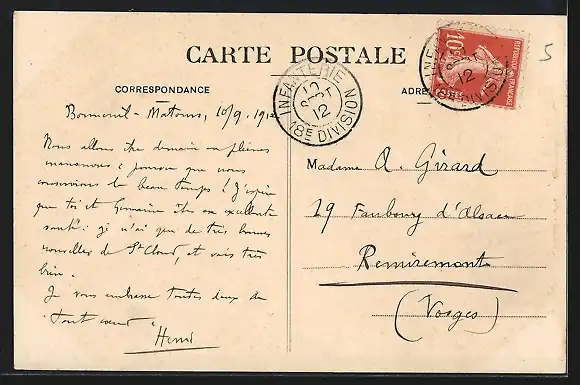 CARTE POSTALE
CORRESPONDANCE
ADRE
INFANTERIE
10
SEPT
12
18E DIVISION
INFANTERIE
SEPT
12
18E DIVISION
10c
REPUBLIQUE FRANÇAISE
5
Bonneuil-Matours, 10/9. 1912
Nous allons être demain en pleines
manœuvres: pourvu que nous
conservions le beau temps! J'espère
que toi et Germaine êtes en excellente
santé: je n'ai que de très bonnes
nouvelles de St Cloud, et vais très
bien.
Je vous embrasse toutes deux de
tout cœur.
Henri
Madame A. Girard
29 Faubourg d'Alsace
Remiremont
(Vosges)